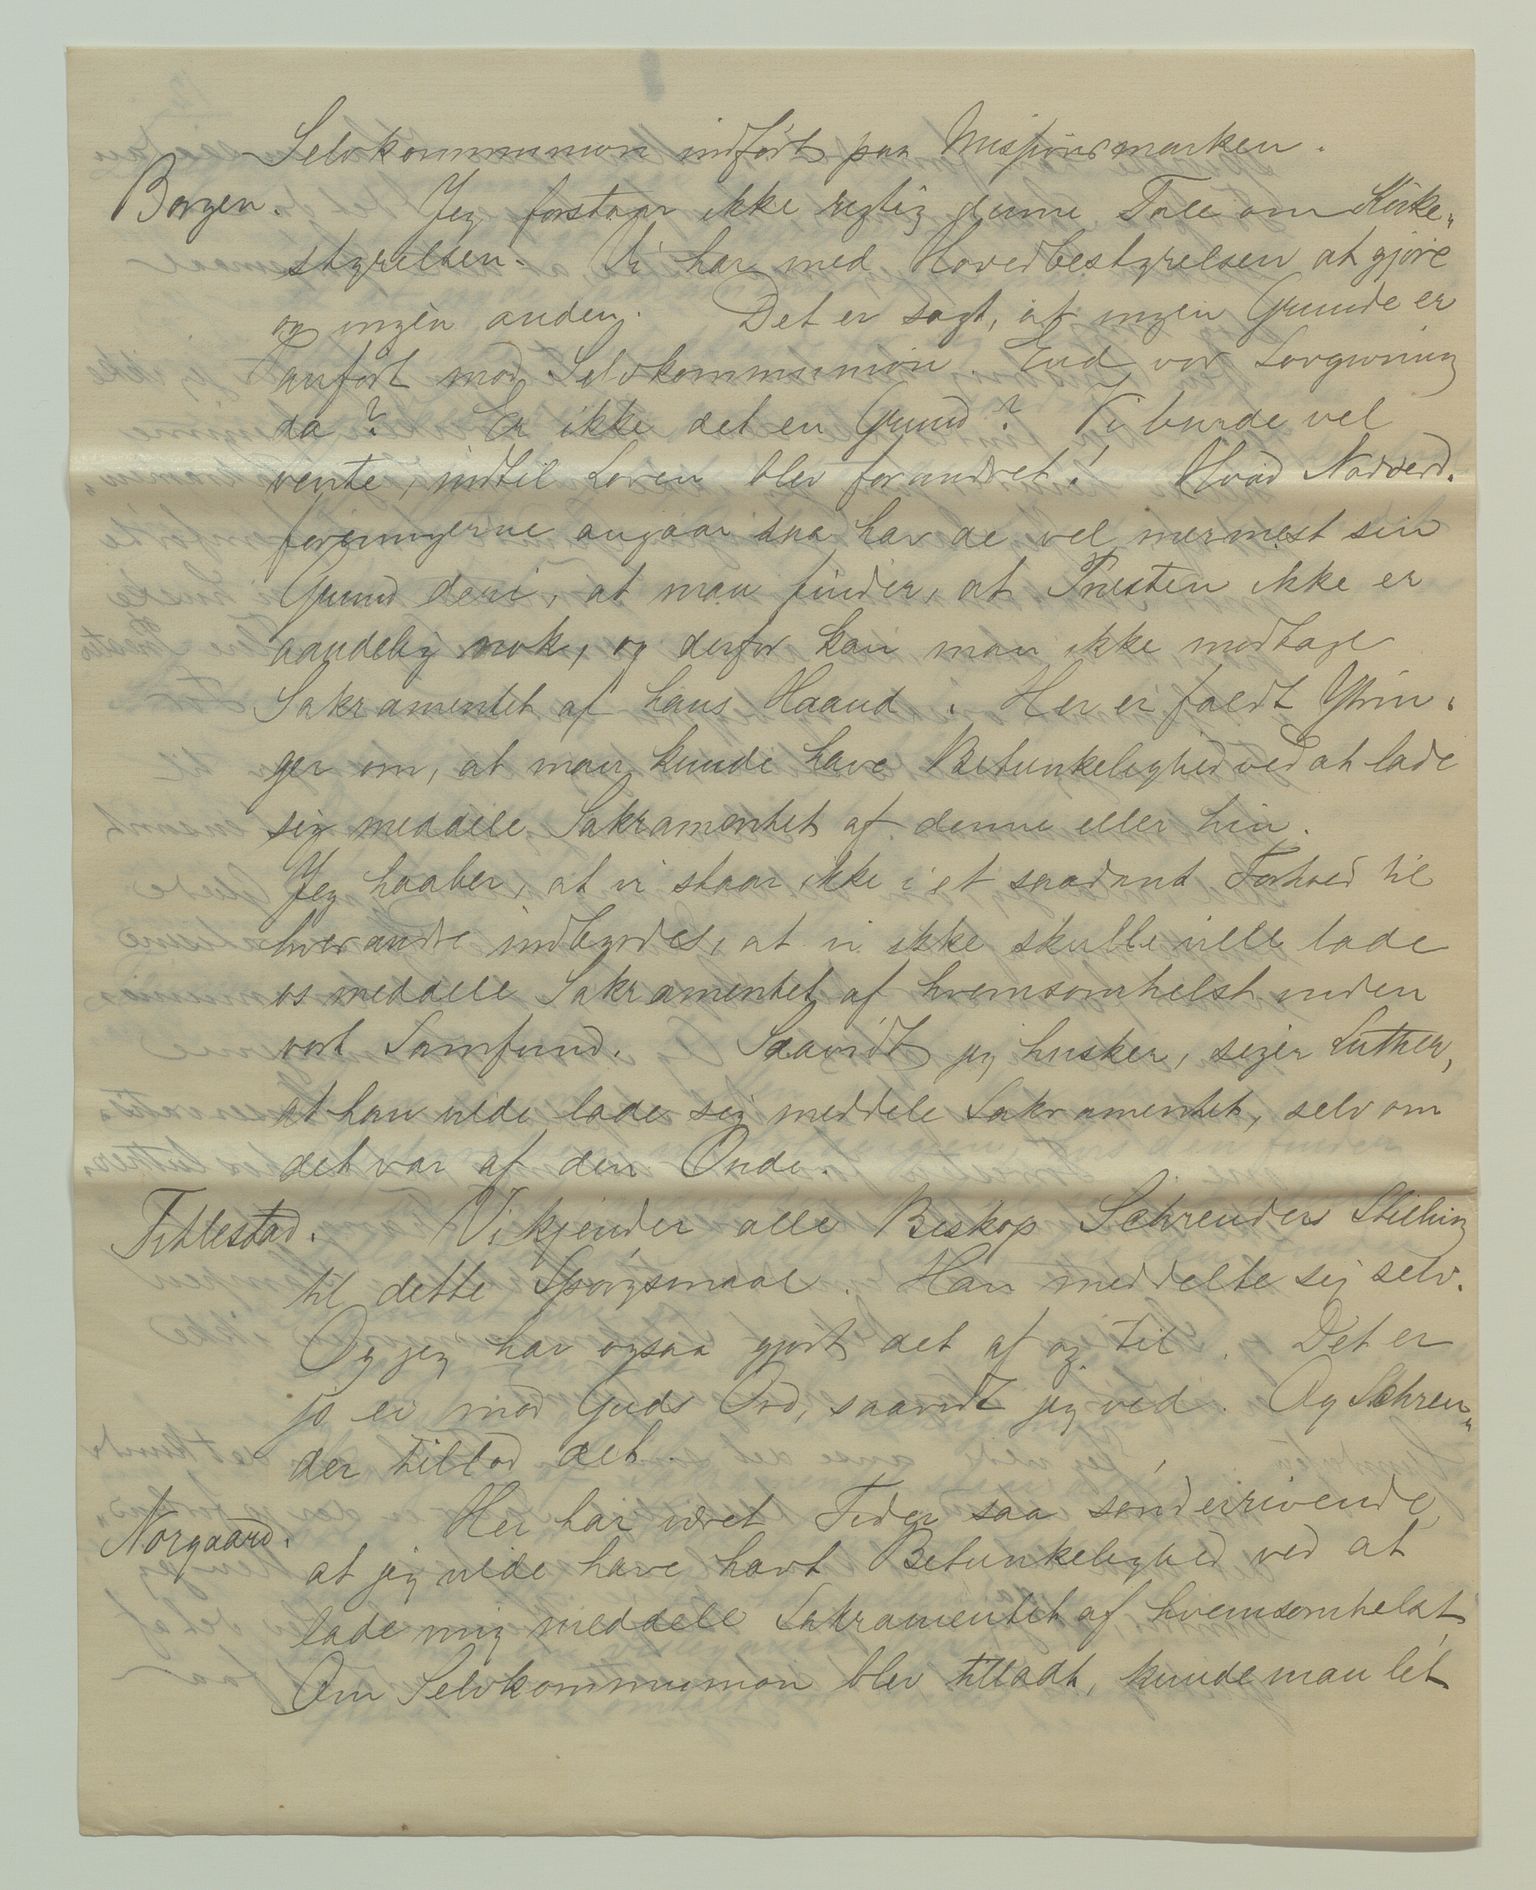 Selvkommunion indført paa Missionsmarken.
Borgen. Jeg forstaar ikke rigtig denne Tale om Kirke„
styrelsen. Vi har med Hovedbestyrelsen at gjøre
og ingen anden. Det er sagt, at ingen Grunde er
anført mod Selvkommunion. End vor Lovgivning
da? Er ikke det en Grund? Vi burde vel
vente, indtil Loven blev forandret! Hvad Nadverd.
foreningerne angaar saa har de vel nærmest sin
Grund deri, at man finder, at Præsten ikke er
aandelig nok, og derfor kan man ikke modtage
Sakramentet af hans Haand. Her er faldt Ytrin.
ger om, at man kunde have Betænkelighed ved at lade
sig meddele Sakramentet af denne eller hin.
Jeg haaber, at vi staar ikke i et saadant Forhold til
hverandre indbyrdes, at vi ikke skulle ville lade
os meddele Sakramentet af hvemsomhelst inden
vort Samfund. Saavidt jeg husker, siger Luther,
at han vilde lade sig meddele Sakramentet, selv om
det var af den Onde.
Titlestad. Vi kjender alle Biskop Schreuders Stilling
til dette Spørgsmaal. Han meddelte sig selv.
Og jeg har ogsaa gjort det af og til. Det er
jo ei mod Guds Ord, saavidt jeg ved. Og Schreu„
der tillod det.
Norgaard. Her har været Tider saa sønderrivende,
at jeg vilde have havt Betænkelighed ved at
lade mig meddele Sakramentet af hvemsomhelst.
Om Selvkommunion blev tilladt, kunde man let